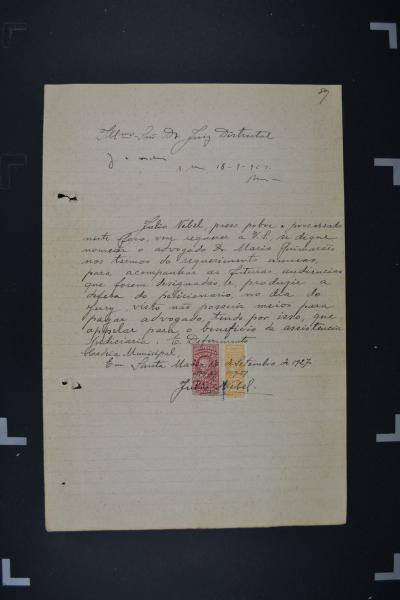 89
Illmo. Snr. Dr. Juiz Districtal
16-9-927.
Julio Nebel, preso pobre e processado
neste fôro, vem requerer a V. S., se digne
nomear o advogado Dr. Mario Guimarães
nos termos do requerimento annexo,
para acompanhar as futuras audiencias
que forem designadas, e, produzir a
defeza do peticionario, no dia do
Jury, visto não possuir meios para
pagar advogado, tendo por isso, que
appelar para o beneficio da assistência
judiciaria. E. Deferimento
Cadeia Municipal,
Em Santa Maria, de Setembro de 1927
Julio Nebel.